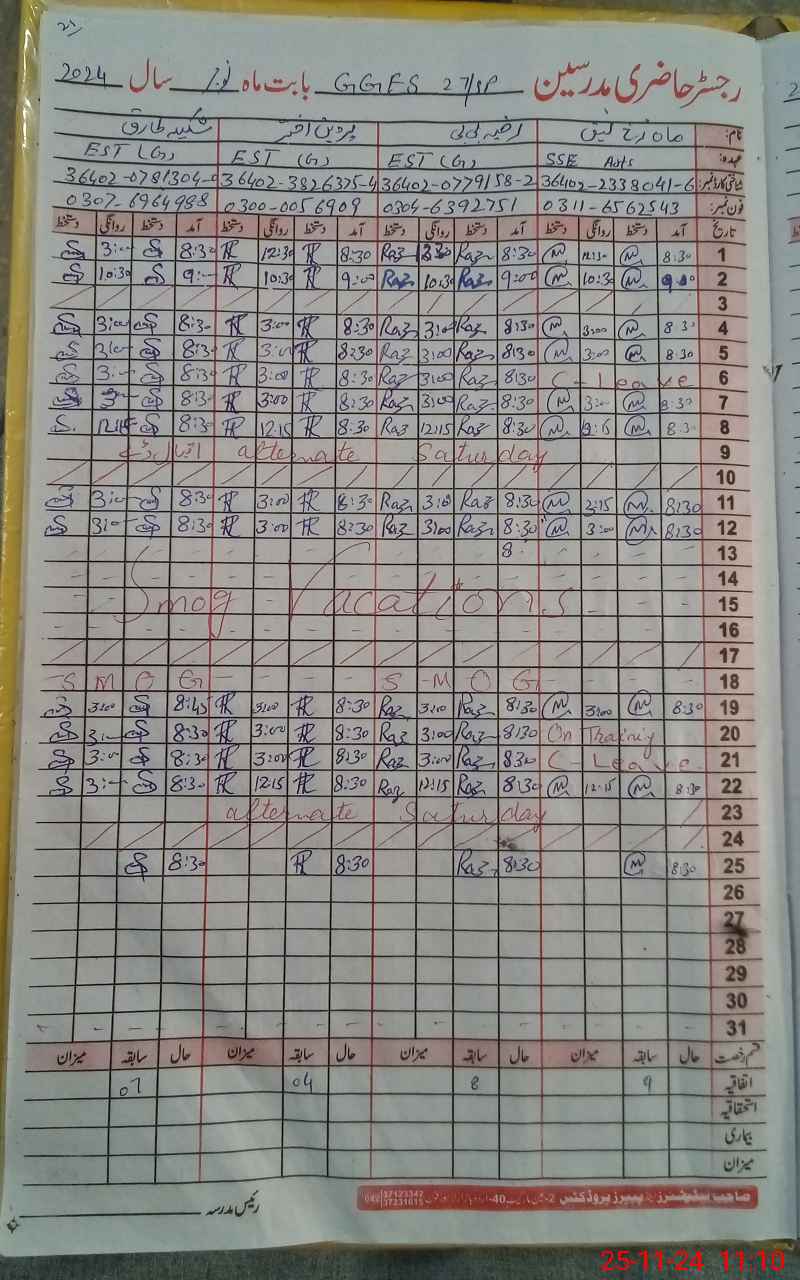 21/
رجسٹر حاضری مدرسین GGES 27/SP بابت ماہ نومبر سال 2024
نام: ماہ رخ رضیہ بی بی پروین اختر شگفتہ طارق
عہدہ: SSE Arts EST (G) EST (G) EST (G)
شناختی کارڈ نمبر: 36402-2338041-6 36402-0779158-2 36402-3826375-4 36402-0781304-0
فون نمبر: 0311-6562543 0304-6392751 0300-0056909 0307-6964988
تاریخ آمد دستخط روانگی دستخط آمد دستخط روانگی دستخط آمد دستخط روانگی دستخط آمد دستخط روانگی دستخط
1 8:30 12:30 8:30 Raz 12:30 Raz 8:30 12:30 8:30 3:00
2 9:00 10:30 9:00 Raz 10:30 Raz 9:00 10:30 9:00 10:30
3
4 8:30 3:00 8:30 Raz 3:00 Raz 8:30 3:00 8:30 3:00
5 8:30 3:00 8:30 Raz 3:00 Raz 8:30 3:00 8:30 3:00
6 C-Leave 8:30 Raz 3:00 Raz 8:30 3:00 8:30 3:00
7 8:30 3:00 8:30 Raz 3:00 Raz 8:30 3:00 8:30 3:00
8 8:30 8:30 Raz 12:15 Raz 8:30 12:15 8:30 12:15
9 اقبال ڈے alternate Saturday
10
11 8:30 2:15 8:30 Raz 3:00 Raz 8:30 3:00 8:30 3:00
12 8:30 3:00 8:30 Raz 3:00 Raz 8:30 3:00 8:30 3:00
13 8:
14
15 Smog Vacations
16
17
18 S M O G S M O G
19 8:30 3:00 8:30 Raz 3:00 Raz 8:30 3:00 8:45 3:00
20 On Training 8:30 Raz 3:00 Raz 8:30 3:00 8:30 3:00
21 C-Leave 8:30 Raz 3:00 Raz 8:30 3:00 8:30 3:00
22 8:30 12:15 8:30 Raz 12:15 Raz 8:30 12:15 8:30 3:00
23 alternate Saturday
24
25 8:30 8:30 Raz 8:30 8:30
26
27
28
29
30
31
قسم رخصت حال سابقہ میزان حال سابقہ میزان حال سابقہ میزان حال سابقہ میزان
اتفاقیہ 9 8 04 07
استحقاقیہ
بیماری
میزان
رئیس مدرسہ
37123347
37231015
25-11-24 11:10